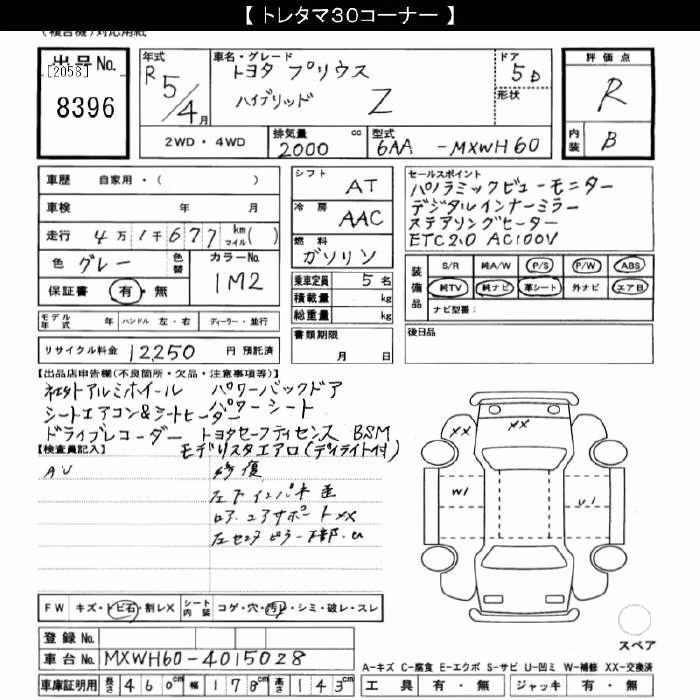 【 トレタマ30コーナー 】
(複合機)対応用紙
出品No. [2058] 8396
年式 R5/4月
車名・グレード トヨタ プリウス ハイブリッド Z
ドア 5D
形状
評価点 R
内装 B
2WD・4WD
排気量 2000 cc
型式 6AA -MXWH60
車歴 自家用・( )
車検 年 月
走行 4万1千677 km マイル( )
色 グレー 色替
カラーNo. 1M2
保証書 有・無
シフト AT
冷房 AAC
燃料 ガソリン
乗車定員 5名
積載量 kg
総重量 kg
セールスポイント
パノラミックビューモニター
デジタルインナーミラー
ステアリングヒーター
ETC2.0 AC100V
装備品 S/R 純A/W P/S P/W ABS
純TV 純ナビ 革シート 外ナビ エアB
ナビ型番:
モデル年式 年 ハンドル 左・右 ディーラー・並行
書類期限 月 日
後日品
リサイクル料金 12,250 円 預託済
【出品店申告欄(不良箇所・欠品・注意事項等)】
社外アルミホイール パワーバックドア
シートエアコン&シートヒーター パワーシート
ドライブレコーダー トヨタセーフティセンス BSM
モデリスタエアロ(デイライト付)
【検査員記入】
AU 修復
XX XX
W1 U1
FW キズ・トビ石・割レX シート内装 コゲ・穴・汚レ・シミ・破レ・スレ
スペア
登録No.
車台No. MXWH60-4015028
A-キズ C-腐食 E-エクボ S-サビ U-凹ミ W-補修 XX-交換済
車庫証明用 長さ 460cm 幅 178cm 高さ 143cm
工具 有・無 ジャッキ 有・無